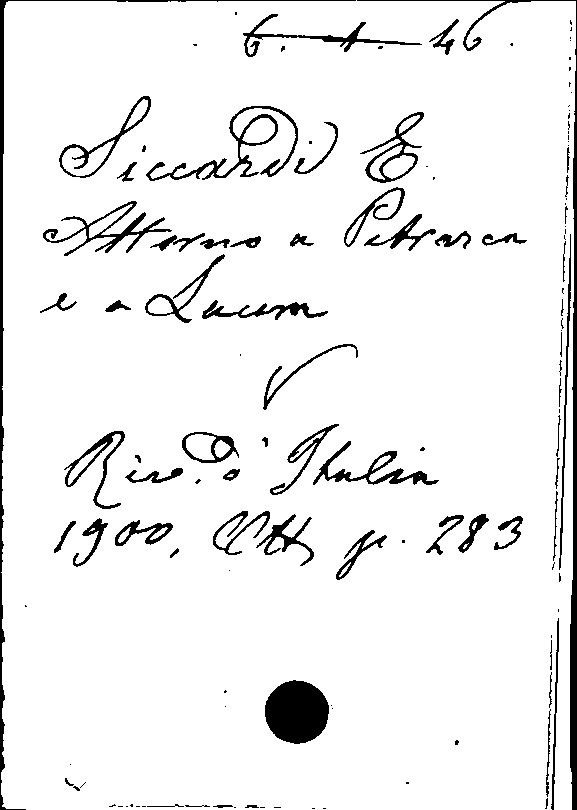 6. 1. 46.
Siccardi E.
Attorno a Petrarca
e a Laura
Riv. d' Italia
1900, Ott, p. 283